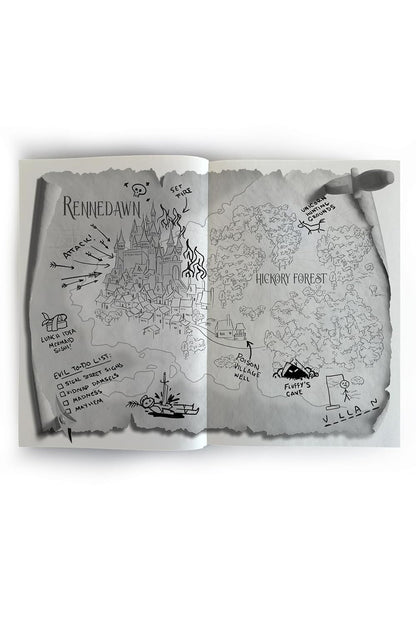 RENNEDAWN
SET
FIRE
ATTACK!
LUNCH IDEA
MERMAID
SUSHI!
EVIL TO-DO LIST:
STEAL SECRET SIGNS
KIDNAP DAMSELS
MADNESS
MAYHEM
UNICORN
HUNTING
GROUNDS
HICKORY FOREST
POISON
VILLAGE
WELL
FLUFFY'S
CAVE
V_LLA_N